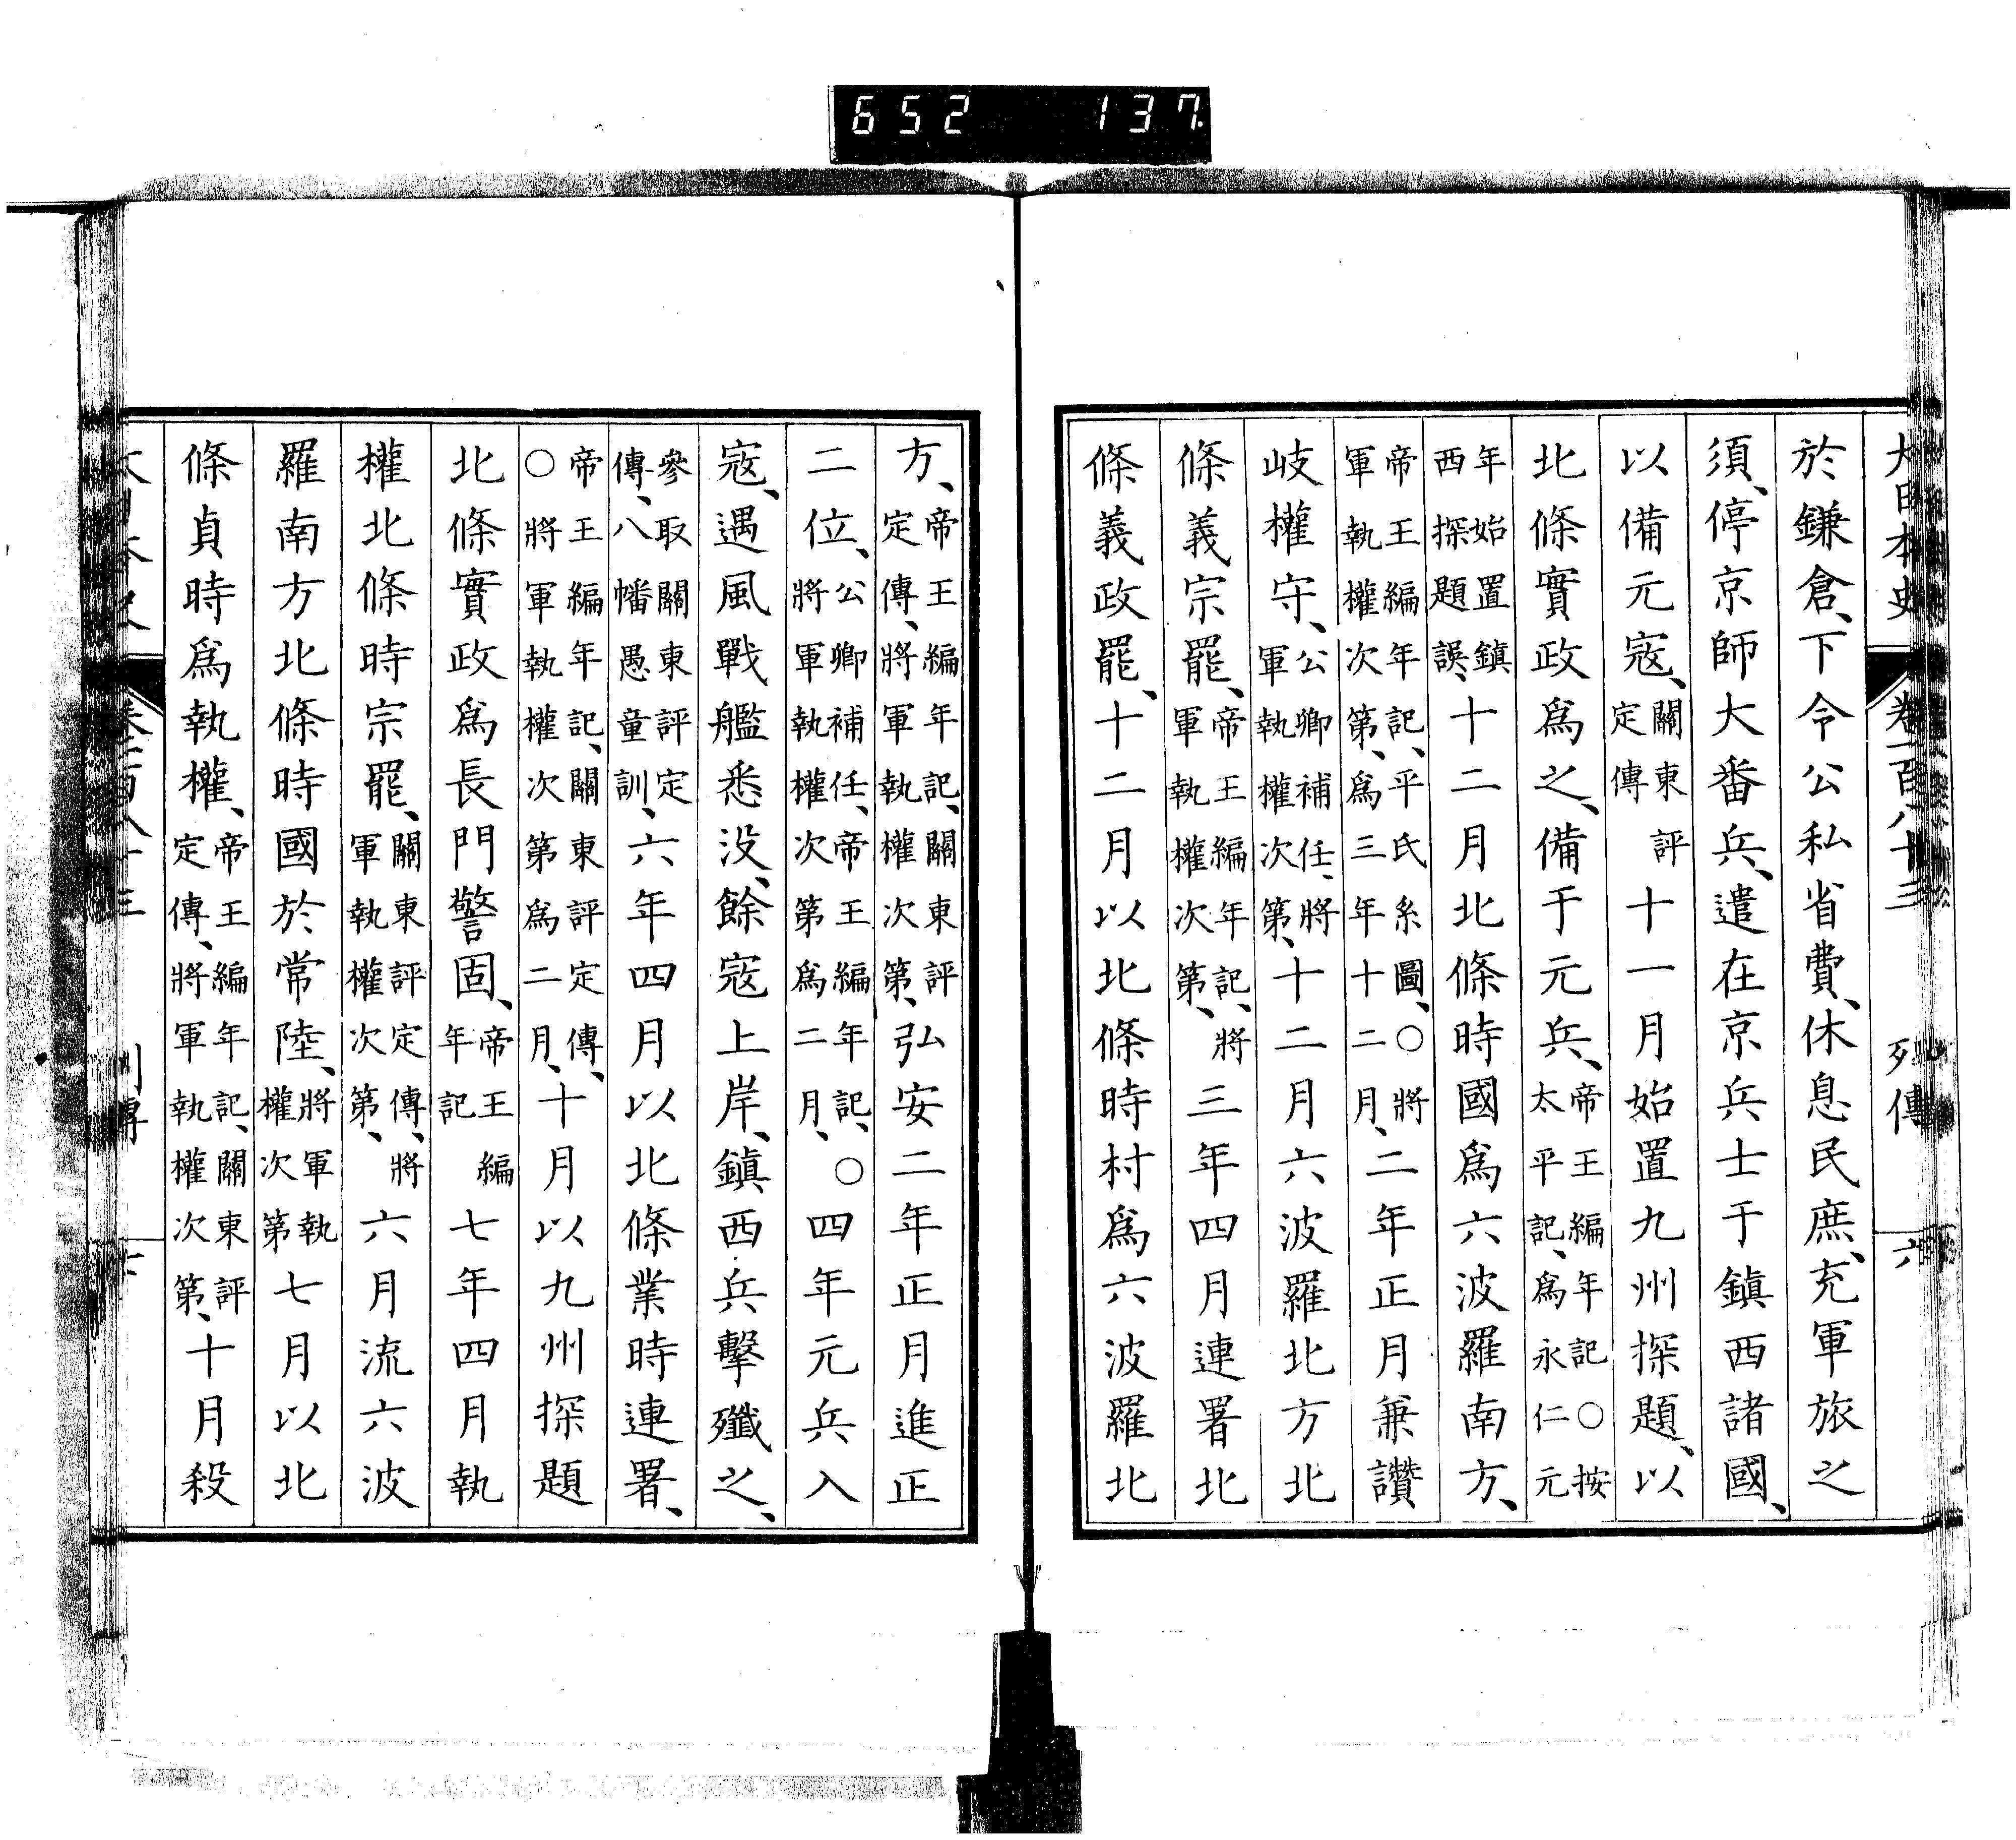 652 137
大日本史 卷一百八十三 列傳 六
於鎌倉、下令公私省費、休息民庶、充軍旅之
須、停京師大番兵、遣在京兵士于鎮西諸國、
以備元寇、關東評定傳十一月始置九州探題、以
北條實政爲之、備于元兵、帝王編年記○按太平記、爲永仁元
年始置鎮西探題誤、十二月北條時國爲六波羅南方、
帝王編年記、平氏系圖、○將軍執權次第、爲三年十二月、二年正月兼讚
岐權守、公卿補任、將軍執權次第、十二月六波羅北方北
條義宗罷、帝王編年記、將軍執權次第、三年四月連署北
條義政罷、十二月以北條時村爲六波羅北
方、帝王編年記、關東評定傳、將軍執權次第、弘安二年正月進正
二位、公卿補任、帝王編年記、○將軍執權次第爲二月、四年元兵入
寇、遇風戰艦悉没、餘寇上岸、鎮西兵擊殲之、
參取關東評定傳、八幡愚童訓、六年四月以北條業時連署、
帝王編年記、關東評定傳、○將軍執權次第爲二月、十月以九州探題
北條實政爲長門警固、帝王編年記七年四月執
權北條時宗罷、關東評定傳、將軍執權次第、六月流六波
羅南方北條時國於常陸、將軍執權次第七月以北
條貞時爲執權、帝王編年記、關東評定傳、將軍執權次第、十月殺